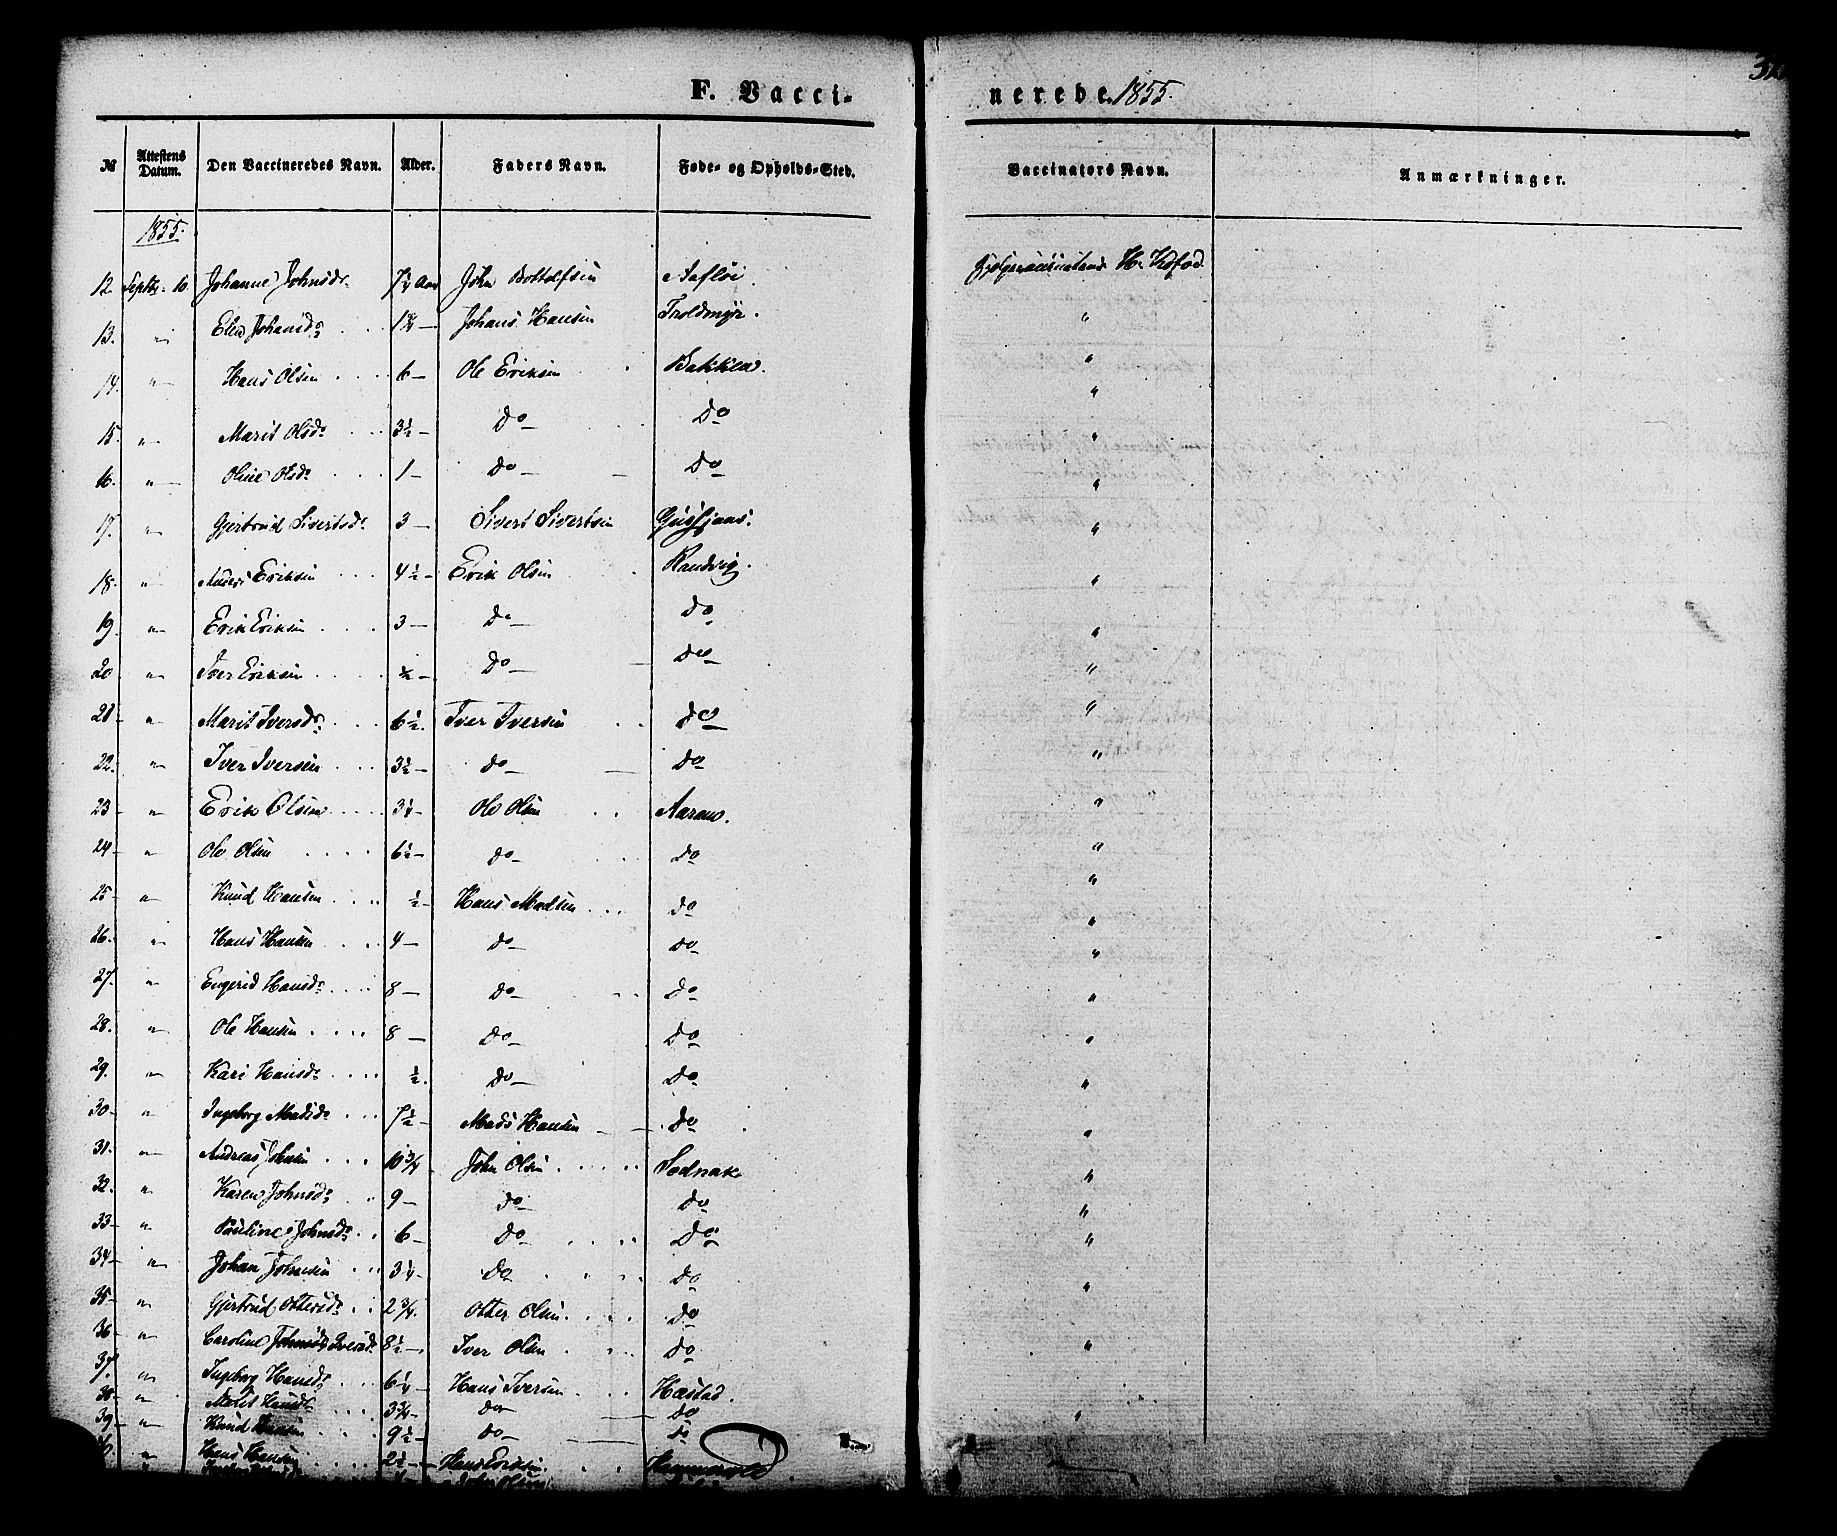 F. Vacci- nerede. 1855.
№ Attestens Datum. Den Vaccineredes Navn. Alder. Faders Navn. Føde- og Opholds-Sted. Vaccinators Navn. Anmærkninger.
1855.
12. Septbr. 10. Johanne Johnsdr. 7 1/4 Aar John Bottolfsen H. Kofod
13. " Johansdr. 1 3/4 — Johans Hansen Troldmyr. "
14. " Hans Olsen 6 — Ole Eriksen Bakken. "
15. " Marit Olsdr 3 1/2 — Do — Do "
16. " Oline Olsdr 1 — Do — Do "
17. " Gjertrud Sivertsdr 3 — Sivert Sivertsen "
18. " Anders Eriksen 4 1/2 — Erik Olsen Randvig. "
19. " Erik Eriksen 3 — Do — Do "
20. " Iver Eriksen — Do — Do "
21 — " Marit Iversdr 6 1/2. Iver Iversen Do "
22. " Iver Iversen 3 1/2 — Do — Do "
23 — " Erik Olsen 3 1/4 — Ole Olsen "
24 — " Ole Olsen 6 1/2 — Do — Do "
25 — " Knud Hansen 1/2 — Hans Madsen Do "
26. " Hans Hansen 4 — Do — Do "
27. " Engerid Hansdr 8 — Do — Do "
28. " Ole Hansen 8 — Do — Do "
29. " Kari Hansdr 1/2. Do — Do "
30 — " Ingeborg Madsdr 7 1/2 — Mads Hansen Do "
31. " Andreas Johnsen 10 3/4 John Olsen "
32. " Karen Johnsdr 9 — Do — Do "
33 — " Pauline Johnsdr 6 — Do — Do "
34 — " Johan Johnsen 3 1/4 — Do Do "
35 — " Gjertrud Ottersdr 2 3/4. Otter Olsen Do "
36 — " Caroline Iversdr 8 1/2 — Iver Olsen Do "
37. " Ingeborg Hansdr 6 1/4 — Hans Iversen Hæstad.
38 — " Hansdr 3 3/4 — Do — Do "
39 — " Knud Hansen 9 1/2 — Do — Do
" Hans Hansen 2 1/2 — Hans Eriksen